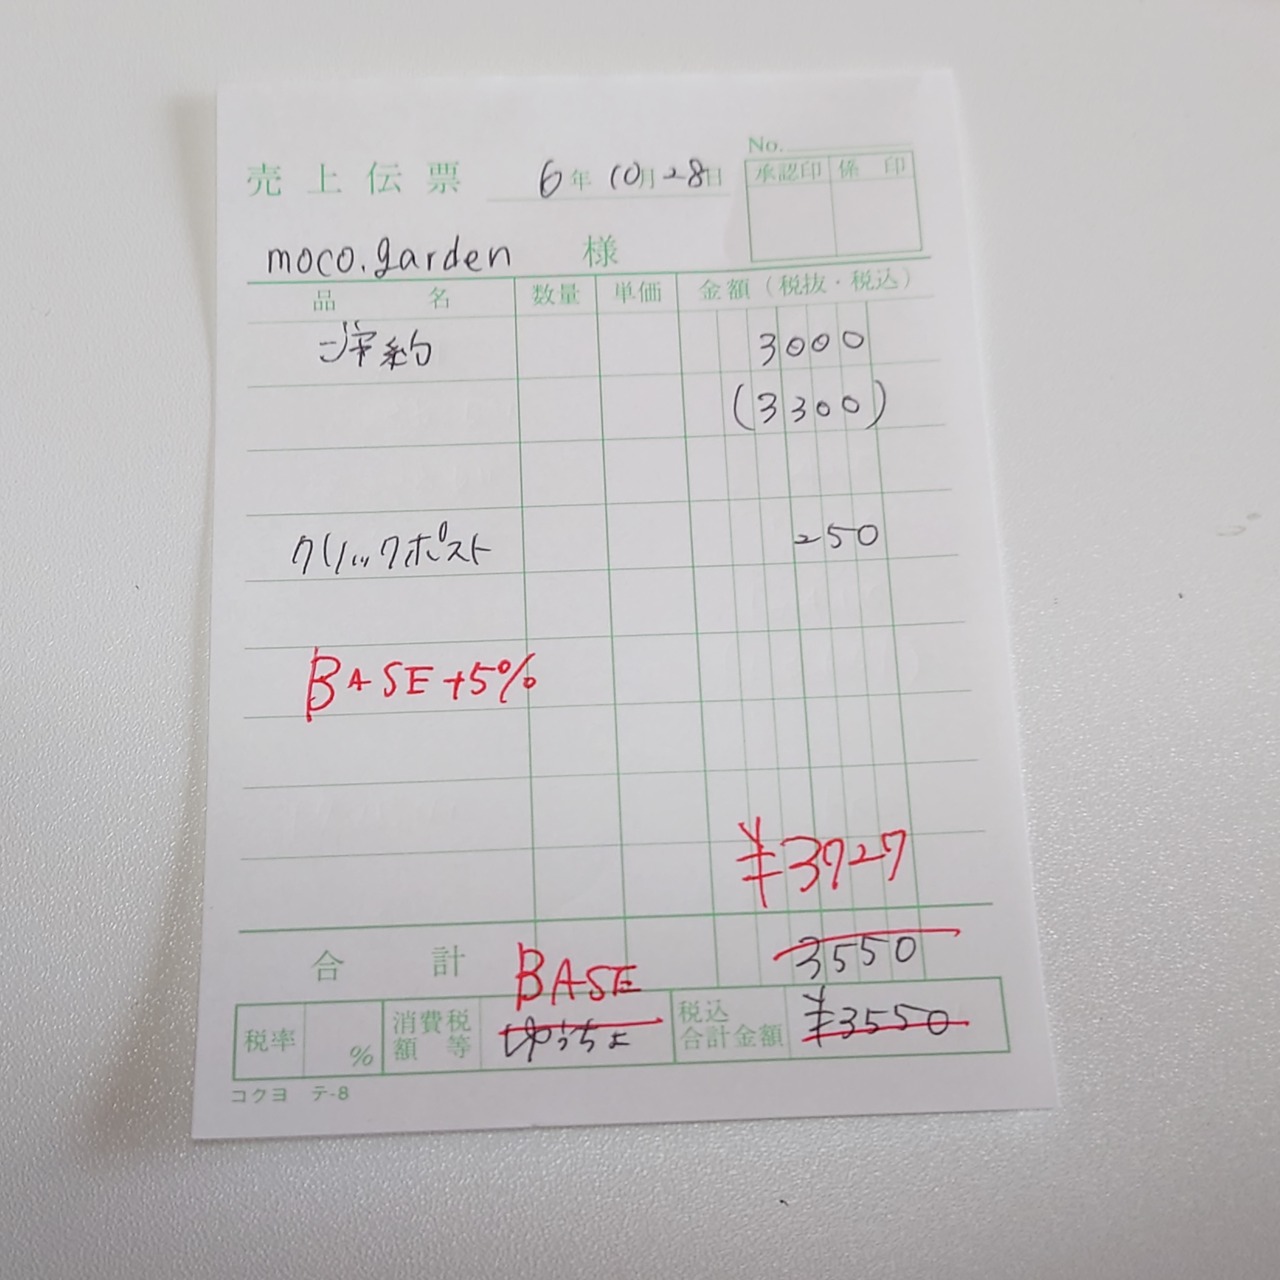 No.
売上伝票 6年 10月 28日
承認印 係 印
moco.garden 様
品 名 数量 単価 金額（税抜・税込）
ご予約 3000
(3300)
クリックポスト 250
BASE+5%
¥3727
合 計 3550
BASE
税率 % 消費税額等 ゆうちょ 税込合計金額 ¥3550
コクヨ テ-8